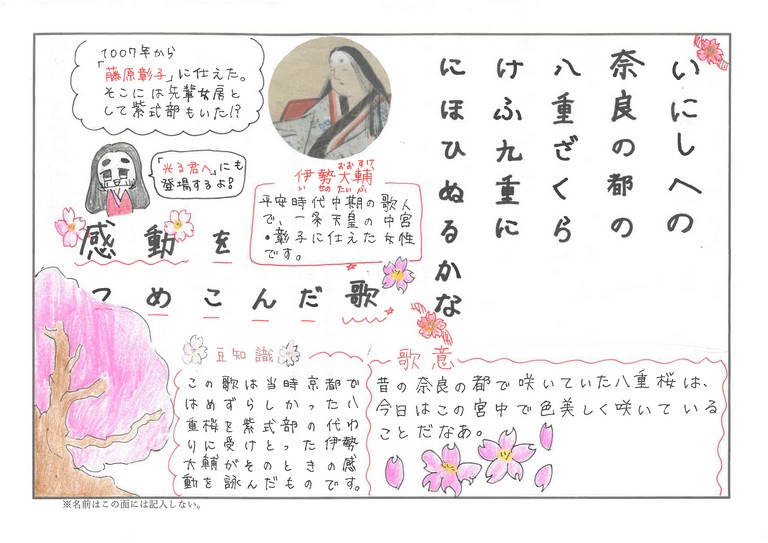 いにしへの
奈良の都の
八重ざくら
けふ九重に
にほひぬるかな
1007年から
「藤原彰子」に仕えた。
そこには先輩女房と
して紫式部もいた!?
「光る君へ」にも
登場するよ!
おおすけ
伊勢大輔
いせのたいふ
平安時代中期の歌人
で、一条天皇の中宮
・彰子に仕えた女性
です。
感動を
つめこんだ歌
豆知識
この歌は当時京都で
はめずらしかった八
重桜を紫式部の代わ
りに受けとった伊勢
大輔がそのときの感
動を詠んだものです。
歌意
昔の奈良の都で咲いていた八重桜は、
今日はこの宮中で色美しく咲いている
ことだなあ。
※名前はこの面には記入しない。